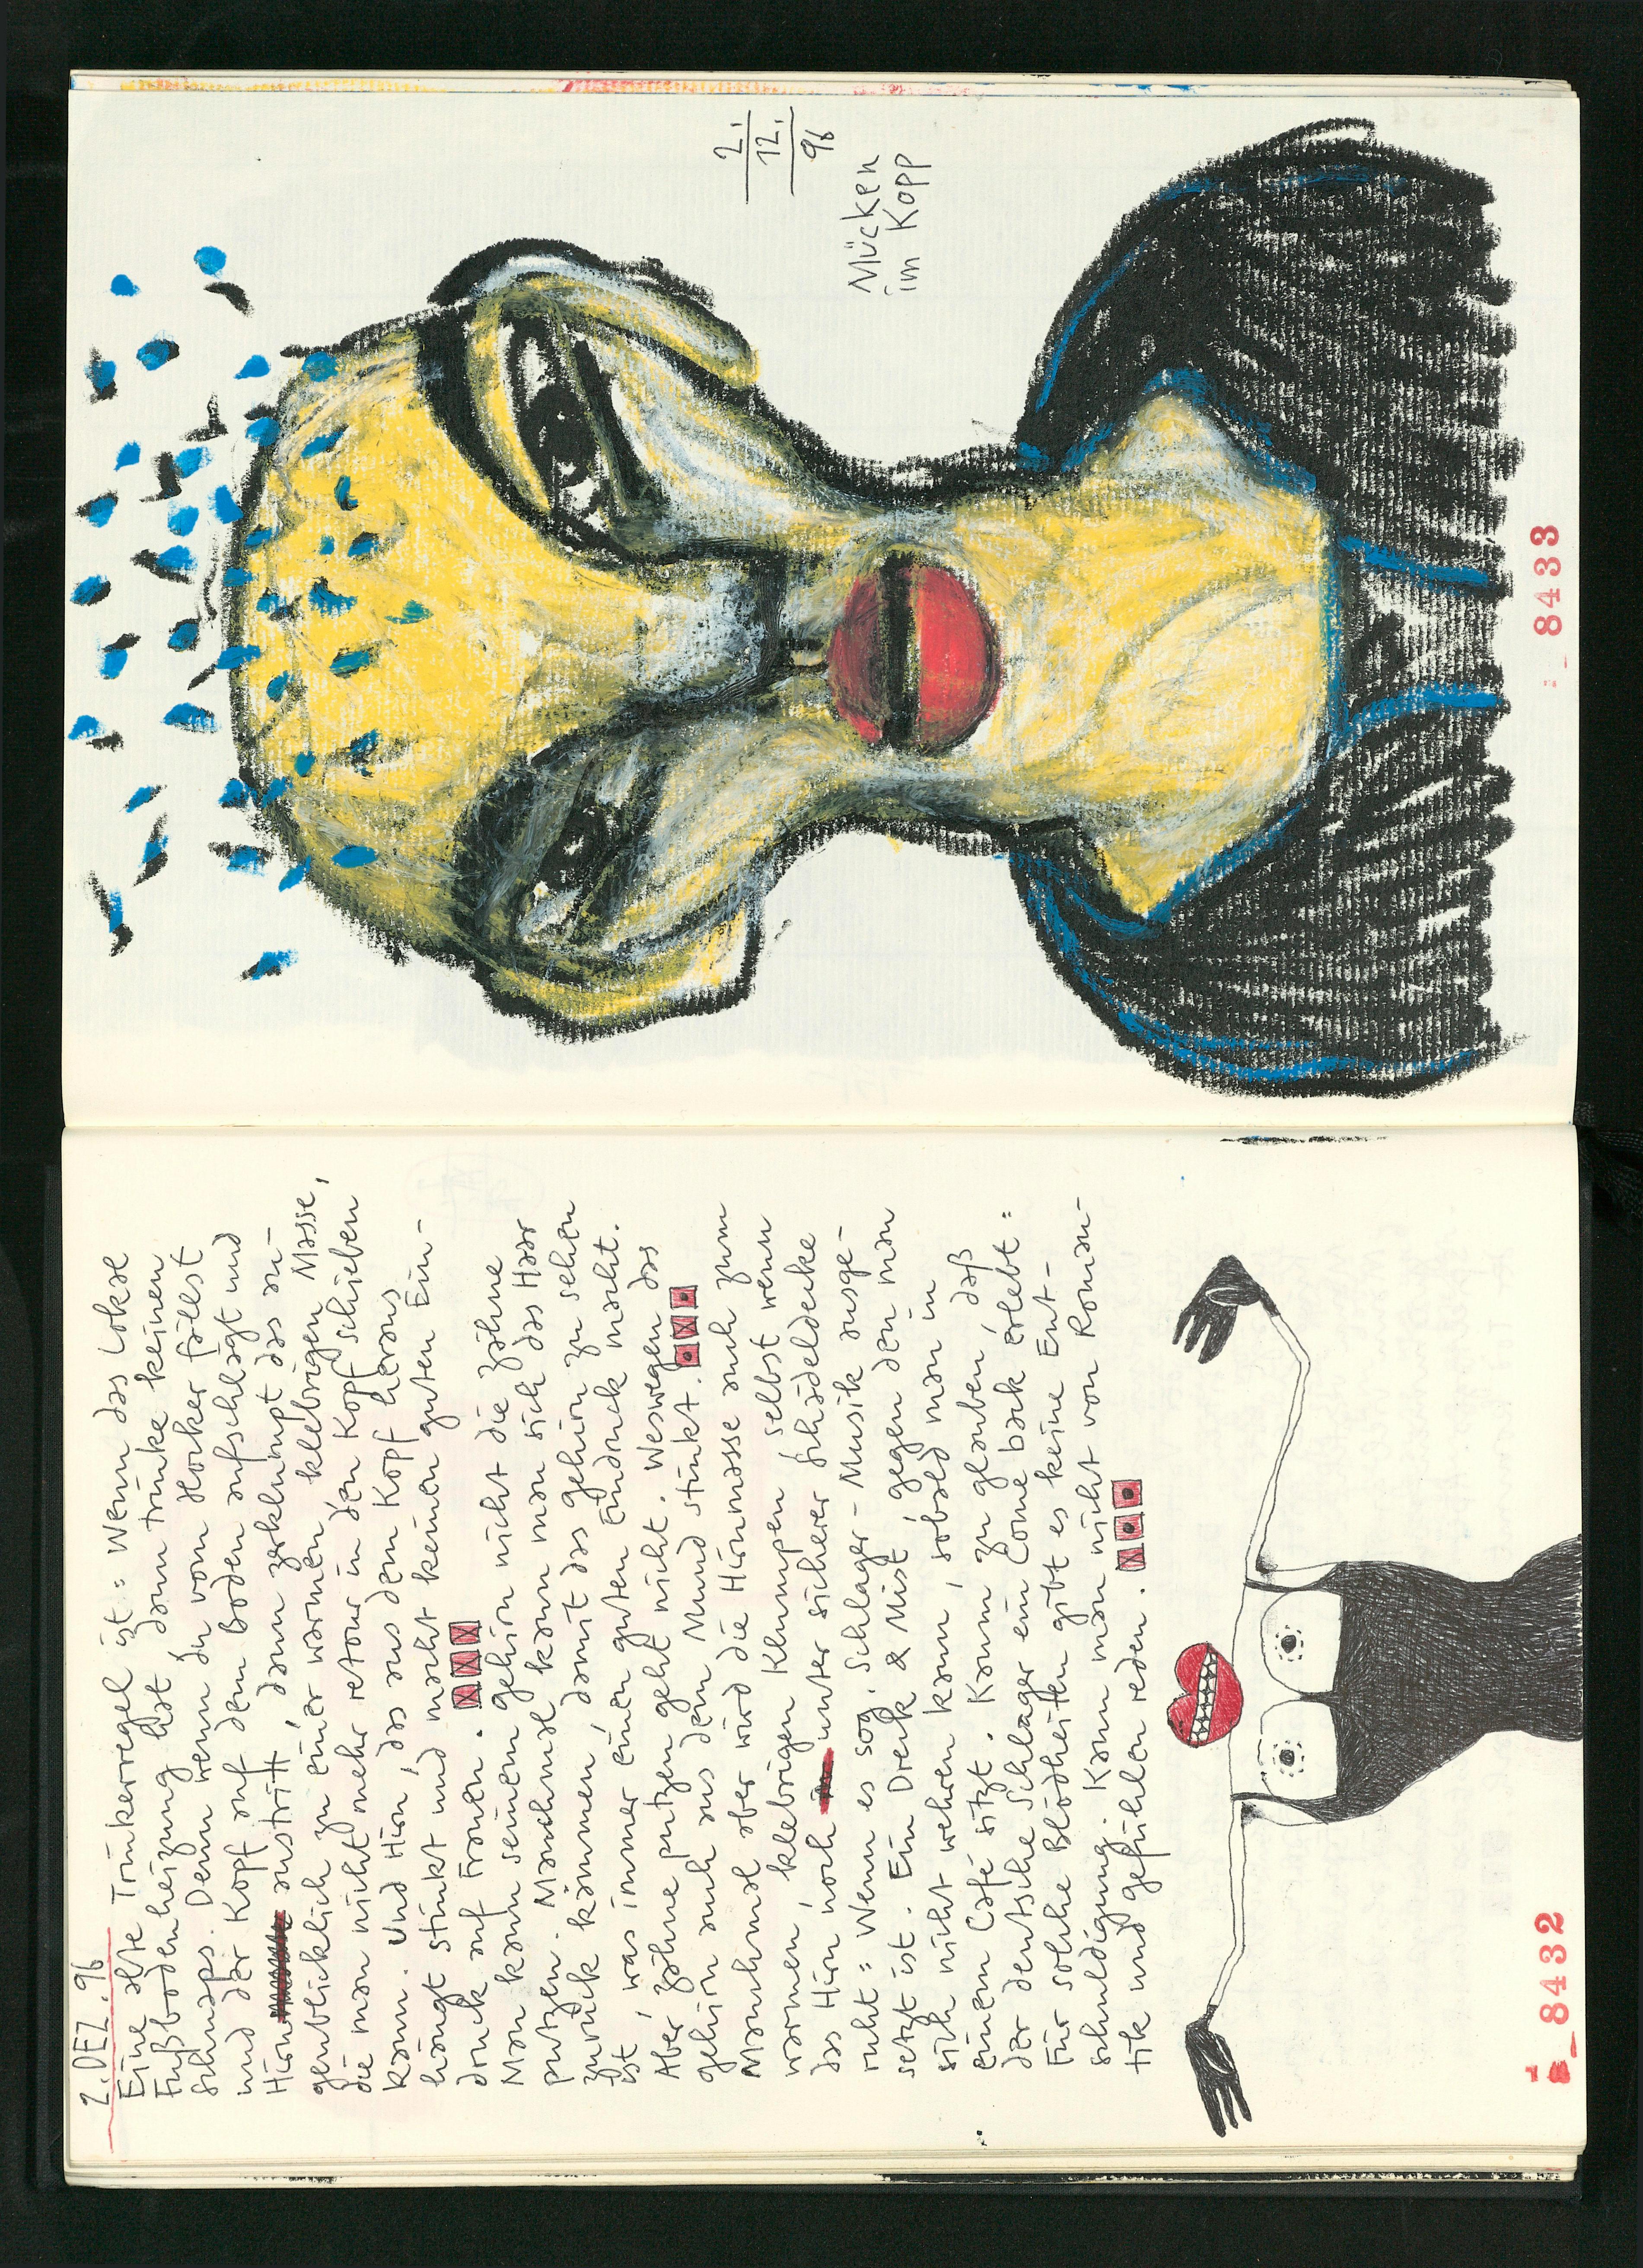 2. DEZ. 96
Eine alte Trinkerregel ist: Wenn das Lokal
Fußbodenheizung hat, dann trinke keinen
Schnaps. Denn wenn du vom Hocker fällst
und der Kopf auf dem Boden aufschlägt und
Hirn austritt, dann zerklumpt das au-
genblicklich zu einer warmen klebrigen Masse,
die man nicht mehr retour in den Kopf schieben
kann. Und Hirn, das aus dem Kopf heraus
hängt stinkt und macht keinen guten Ein-
druck auf Frauen.
Man kann seinem gehirn nicht die zähne
putzen. Manchmal kann man sich das Haar
zurück kämmen, damit das gehirn zu sehen
ist, was immer einen guten Eindruck macht.
Aber zähne putzen geht nicht. Weswegen das
gehirn auch aus dem Mund stinkt.
Manchmal aber wird die Hirnmasse auch zum
warmen, klebrigen Klumpen, selbst wenn
das Hirn noch unter sicherer Schädeldecke
ruht: Wenn es sog. Schlager-Musik ausge-
setzt ist. Ein Dreck & Mist, gegen den man
sich nicht wehren kann, sobald man in
einem Café sitzt. Kaum zu glauben, daß
der deutsche Schlager ein Come back erlebt:
Für solche Blödheiten gibt es keine Ent-
schuldigung. Kann man nicht von Roman-
tik und gefühlen reden.
8432
2.
12.
96
Mücken
im Kopp
8433